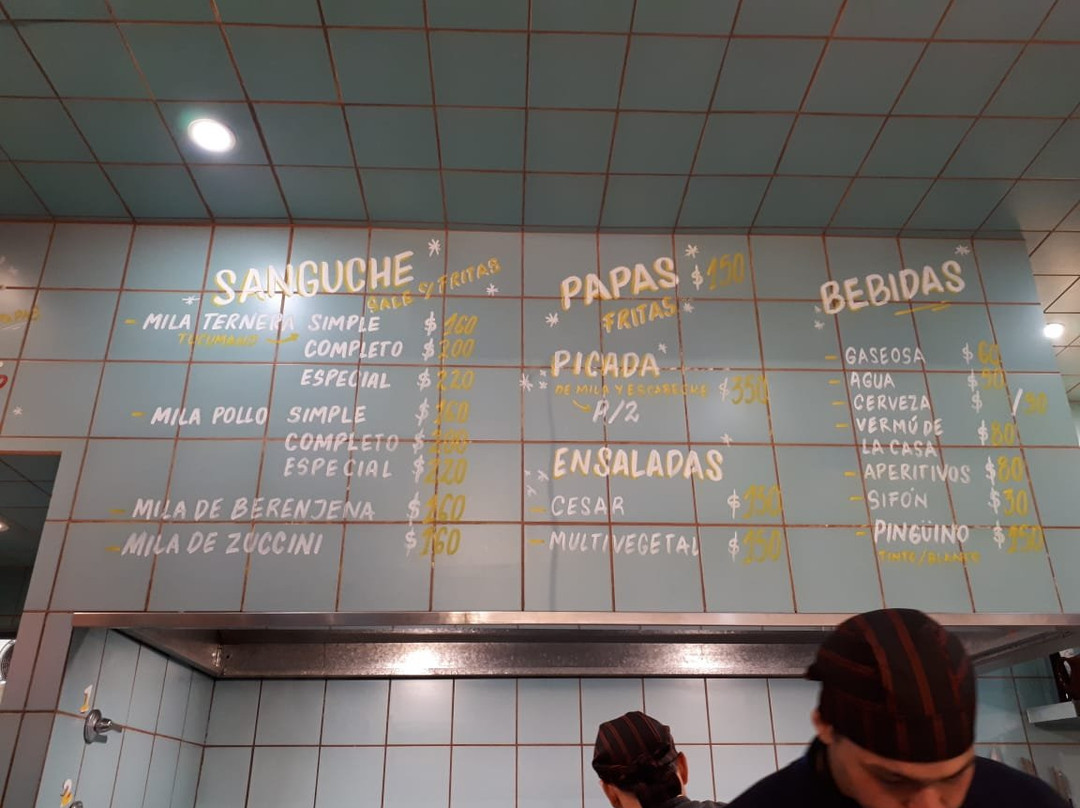 SANGUCHE
SALE C/FRITAS
MILA TERNERA SIMPLE $160
TUCUMANO
COMPLETO $200
ESPECIAL $220
MILA POLLO SIMPLE $160
COMPLETO $200
ESPECIAL $220
MILA DE BERENJENA $160
MILA DE ZUCCINI $160
PAPAS $150
FRITAS
PICADA
DE MILA Y ESCABECHE $350
P/2
ENSALADAS
CESAR $150
MULTIVEGETAL $150
BEBIDAS
GASEOSA $60
AGUA $50
CERVEZA $ /90
VERMÚ DE $80
LA CASA
APERITIVOS $80
SIFÓN $30
PINGÜINO $150
TINTO/BLANCO
1
2